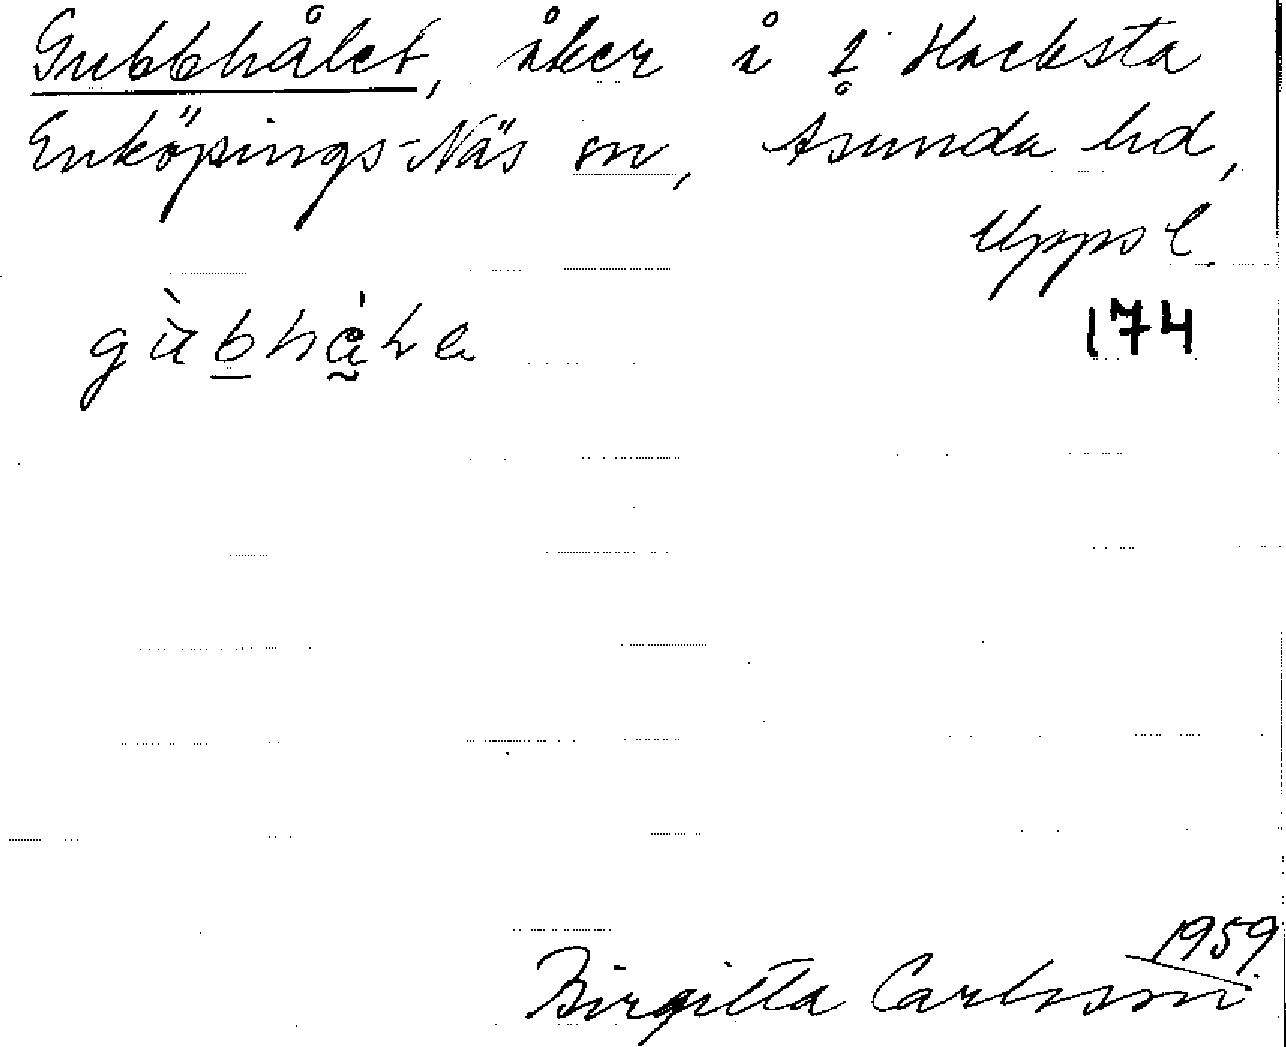 Gubbhålet, åker å 2 Hacksta
Enköpings-Näs sn, Åsunda hd,
Upps l.
174
1959
Birgitta Carlsson